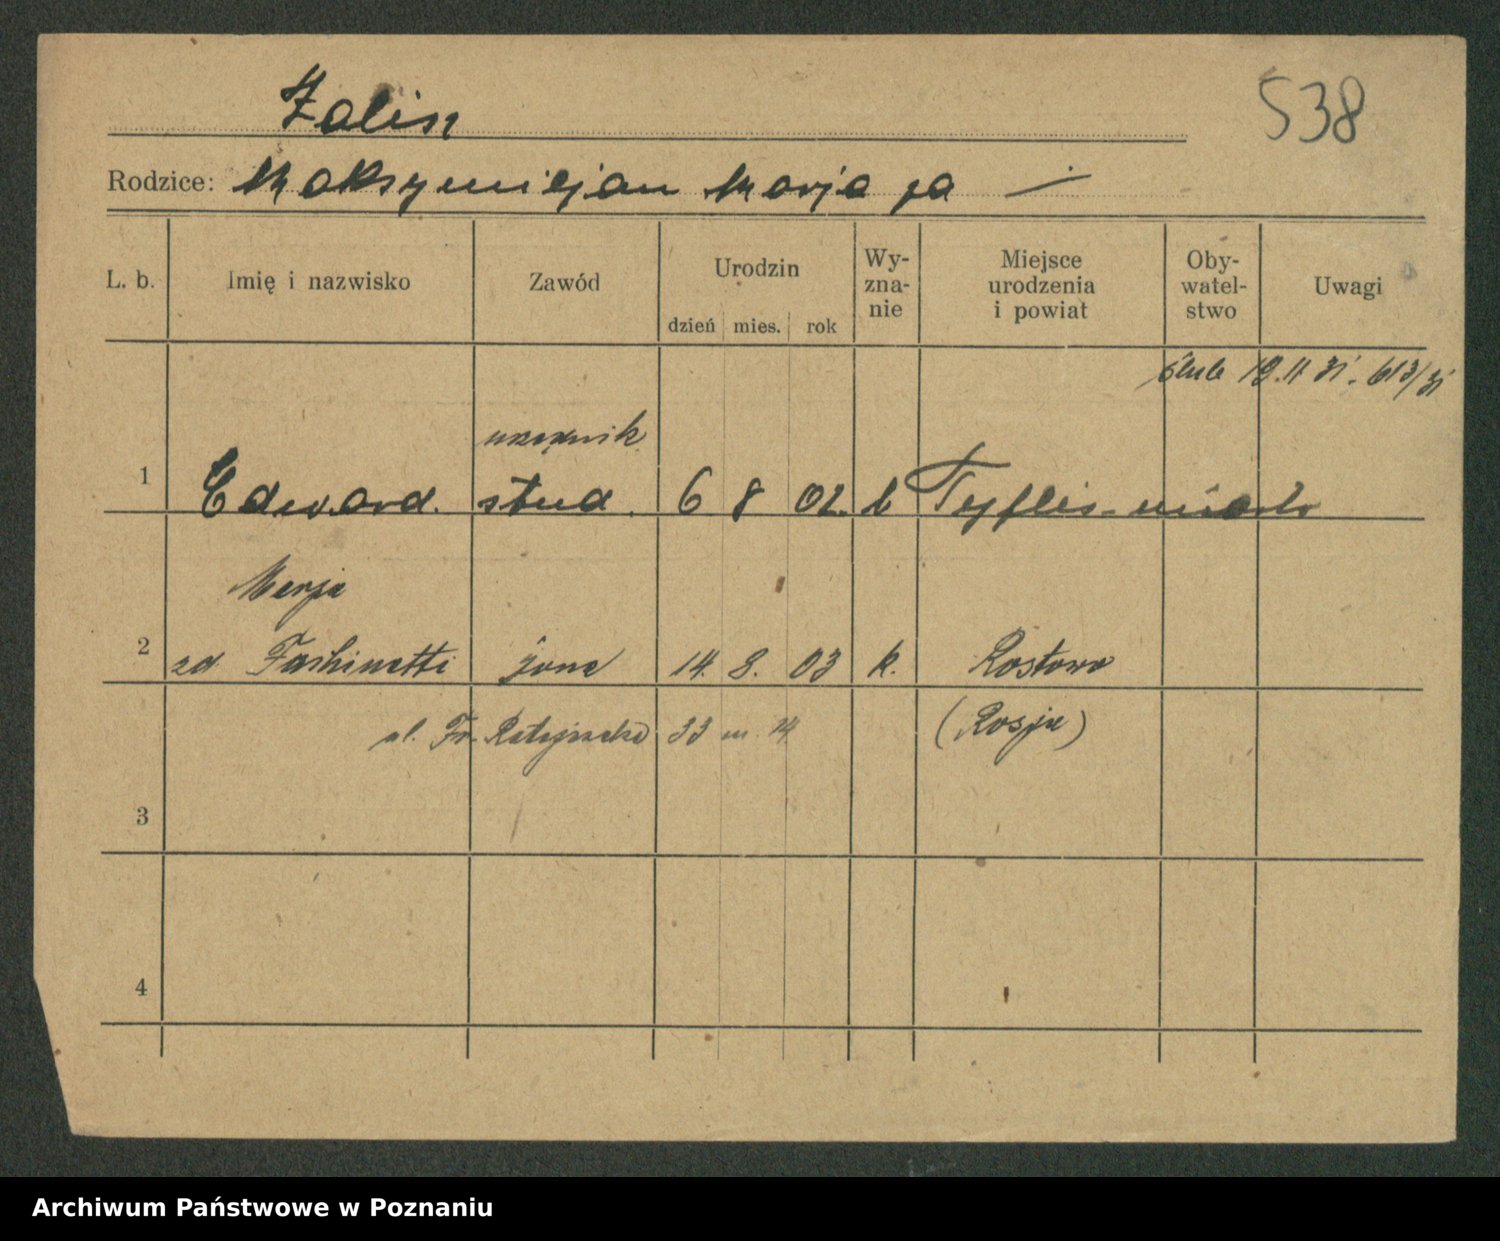 Zalis
538
Rodzice: Maksymiljan Marja
L. b. Imię i nazwisko Zawód Urodzin dzień mies. rok Wy-zna-nie Miejsce urodzenia i powiat Oby-watel-stwo Uwagi
ślub 19.11 31. 613/31
urzędnik
1 Edward. stud. 6 8 02. k Tyflis-miasto
Marja
2 zd Fashinetti żona 14. 8. 03 k. Rostow
ul. Fr. Ratajczaka 33 m. 14 (Rosja)
3
4
Archiwum Państwowe w Poznaniu